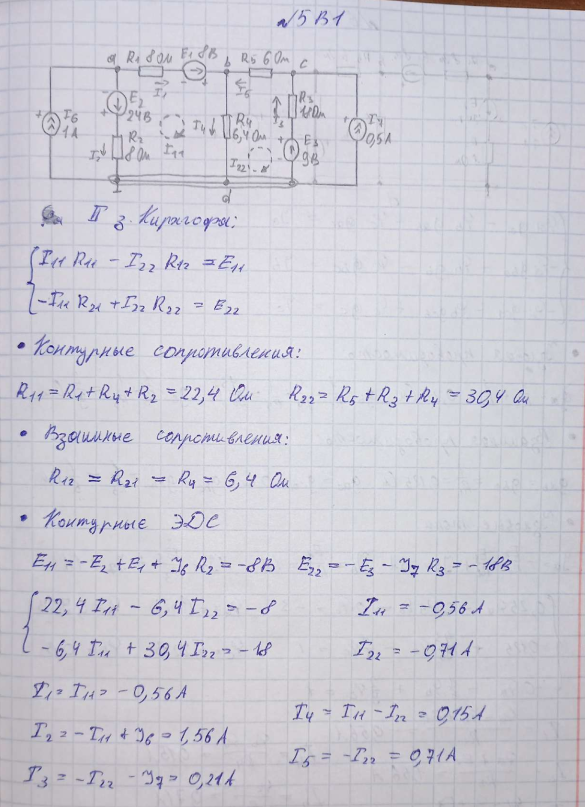 №5 В1
a R1 8 Ом E1 8В b R5 6 Ом c
I1 I5
I6 1А E2 24В R2 8 Ом I2 I11 I4 R4 6,4 Ом I22 I3 R3 18 Ом E3 9В I7 0,5А
d
II з. Кирхгофа:
I11 R11 − I22 R12 = E11
−I11 R21 + I22 R22 = E22
• Контурные сопротивления:
R11 = R1 + R4 + R2 = 22,4 Ом R22 = R5 + R3 + R4 = 30,4 Ом
• Взаимные сопротивления:
R12 = R21 = R4 = 6,4 Ом
• Контурные ЭДС
E11 = −E2 + E1 + J6 R2 = −8В E22 = −E3 − J7 R3 = −18В
22,4 I11 − 6,4 I22 = −8 I11 = −0,56 А
−6,4 I11 + 30,4 I22 = −18 I22 = −0,71 А
I1 = I11 = −0,56 А
I4 = I11 − I22 = 0,15 А
I2 = −I11 + J6 = 1,56 А
I5 = −I22 = 0,71 А
I3 = −I22 − J7 = 0,21 А